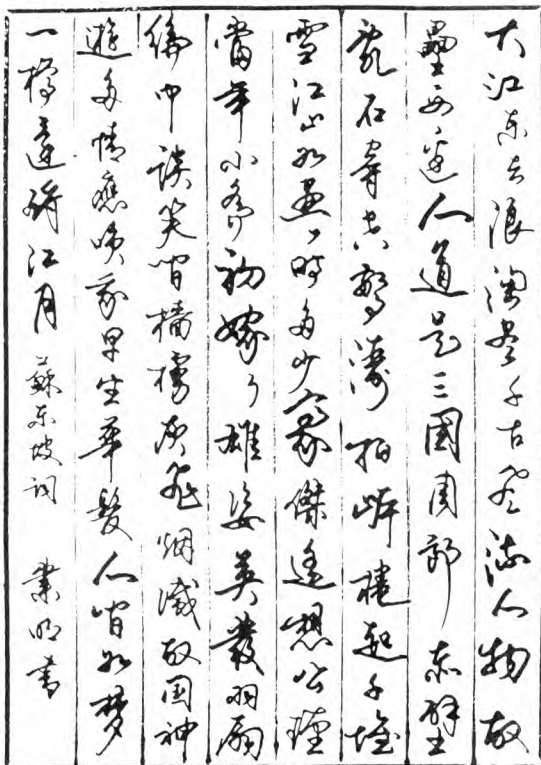 大江东去浪淘尽千古风流人物故
壘西边人道是三國周郎赤壁
亂石穿空驚濤拍岸捲起千堆
雪江山如畫一時多少豪傑遙想公瑾
當年小喬初嫁了雄姿英發羽扇
綸巾談笑間檣櫓灰飛烟滅故国神
遊多情應笑我早生華髮人间如梦
一樽還酹江月 蘇东坡词 業明書